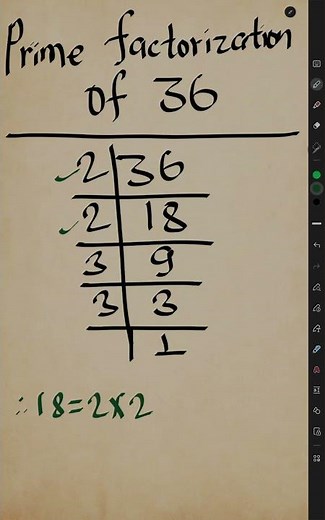 Prime factorization
of 36
2 36
2 18
3 9
3 3
1
∴18=2×2